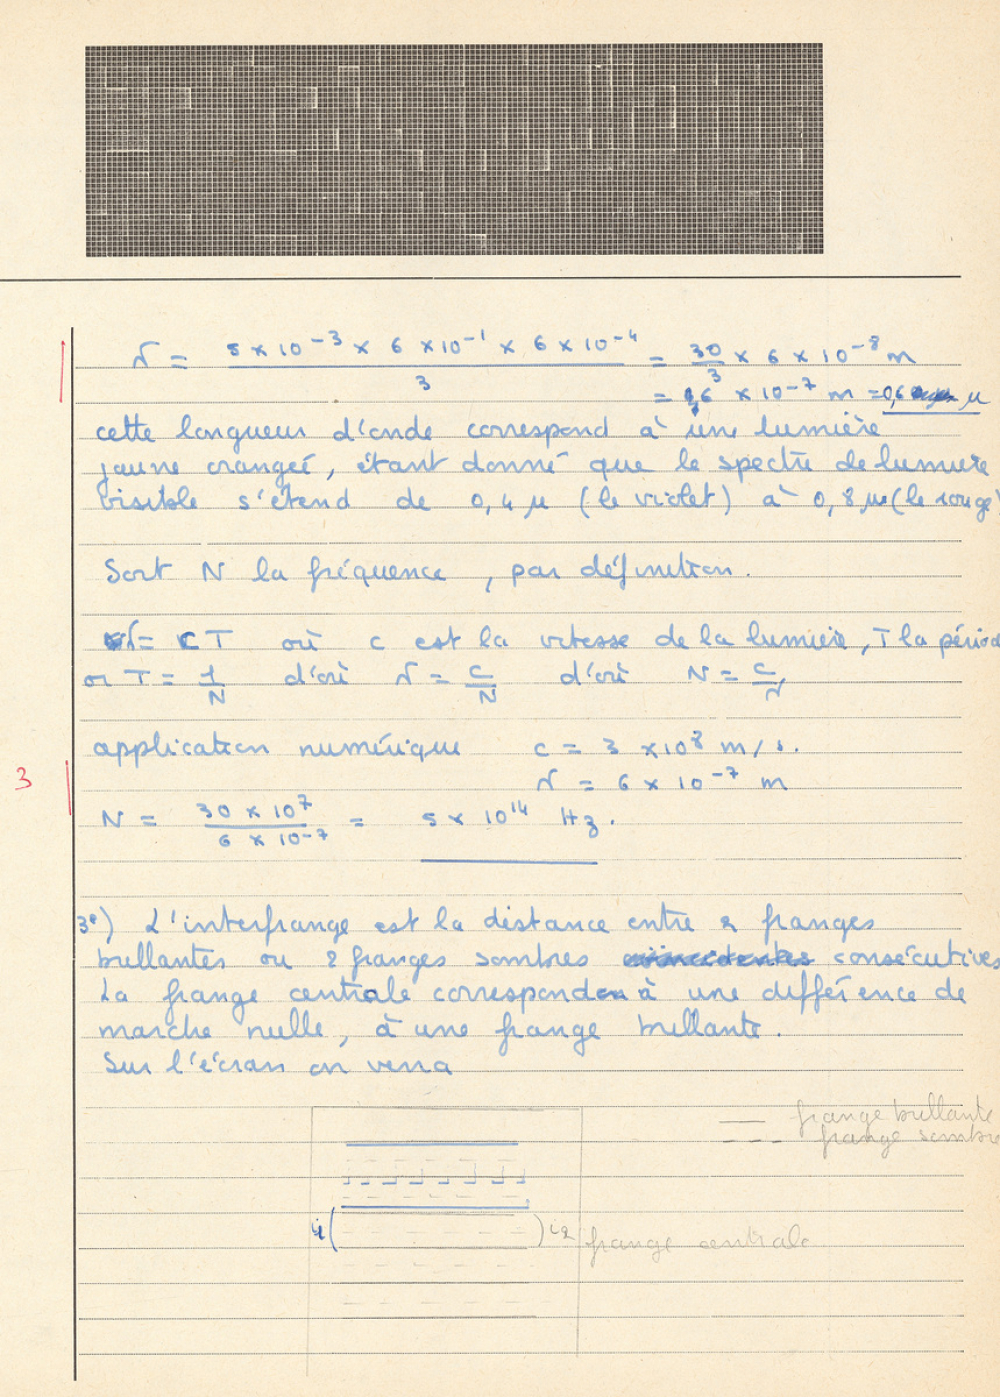 λ = 5 × 10⁻³ × 6 × 10⁻¹ × 6 × 10⁻⁴ / 3 = 30/3 × 6 × 10⁻⁸ m
= 6 × 10⁻⁷ m = 0,6 μ
cette longueur d'onde correspond à une lumière
jaune orangée, étant donné que le spectre de lumière
visible s'étend de 0,4 μ (le violet) à 0,8 μ (le rouge)
Soit N la fréquence, par définition.
λ = cT où c est la vitesse de la lumière, T la période
or T = 1/N d'où λ = c/N d'où N = c/λ
application numérique c = 3 × 10⁸ m/s.
λ = 6 × 10⁻⁷ m
3
N = 30 × 10⁷ / 6 × 10⁻⁷ = 5 × 10¹⁴ Hz.
3°) L'interfrange est la distance entre 2 franges
brillantes ou 2 franges sombres consécutives
La frange centrale correspond à une différence de
marche nulle, à une frange brillante.
Sur l'écran on verra
frange brillante
frange sombre
i1 ( ) i2 frange centrale